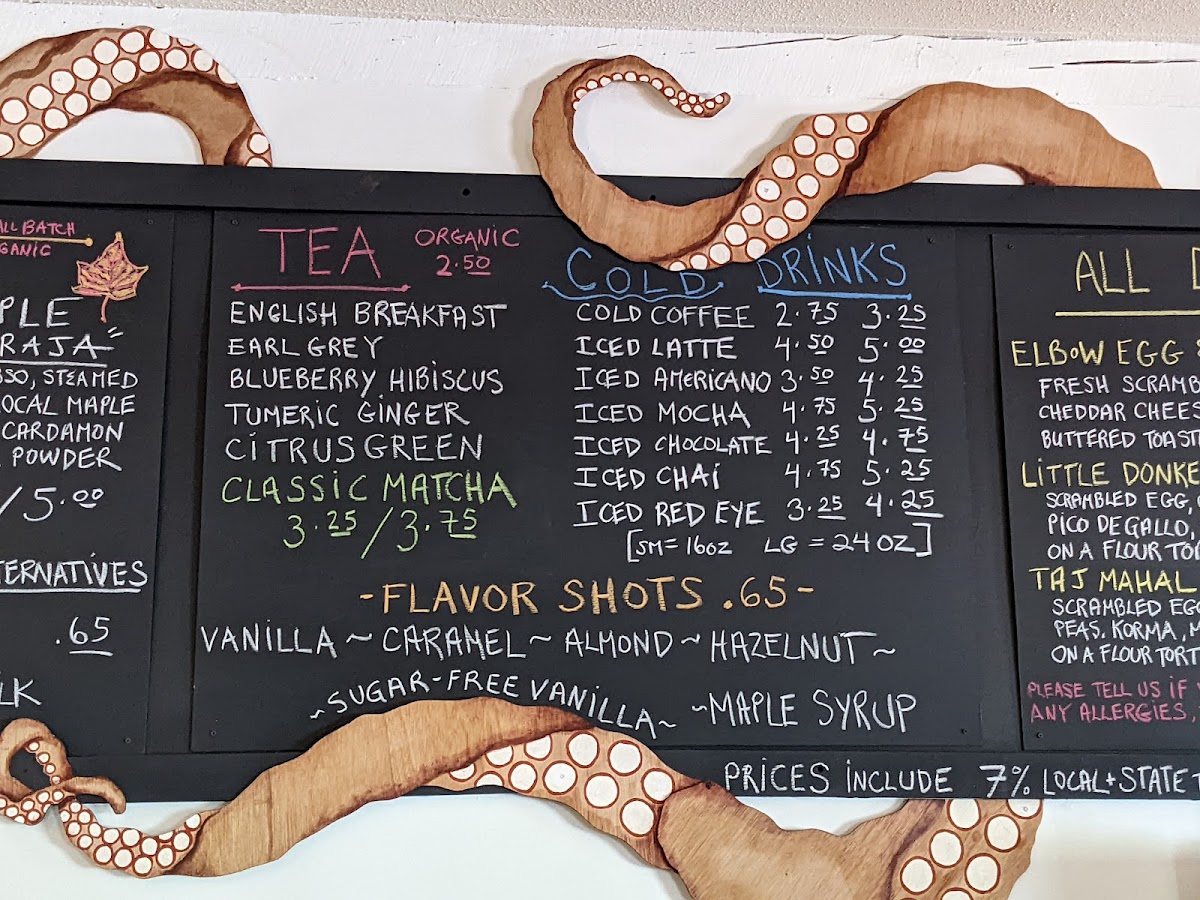 ALL BATCH
GANIC
PLE
RAJA
SSO, STEAMED
LOCAL MAPLE
CARDAMON
POWDER
/5.00
TERNATIVES
.65
LK
TEA ORGANIC
2.50
ENGLISH BREAKFAST
EARL GREY
BLUEBERRY HIBISCUS
TUMERIC GINGER
CITRUS GREEN
CLASSIC MATCHA
3.25/3.75
COLD DRINKS
COLD COFFEE 2.75 3.25
ICED LATTE 4.50 5.00
ICED AMERICANO 3.50 4.25
ICED MOCHA 4.75 5.25
ICED CHOCOLATE 4.25 4.75
ICED CHAI 4.75 5.25
ICED RED EYE 3.25 4.25
[SM=16OZ LG=24OZ]
-FLAVOR SHOTS .65-
VANILLA~CARAMEL~ALMOND~HAZELNUT~
~SUGAR-FREE VANILLA~ ~MAPLE SYRUP
ALL D
ELBOW EGG
FRESH SCRAMB
CHEDDAR CHEES
BUTTERED TOAST
LITTLE DONKE
SCRAMBLED EGG,
PICO DE GALLO,
ON A FLOUR TOR
TAJ MAHAL
SCRAMBLED EGG
PEAS. KORMA, M
ON A FLOUR TORT
PLEASE TELL US IF
ANY ALLERGIES,
PRICES INCLUDE 7% LOCAL+STATE